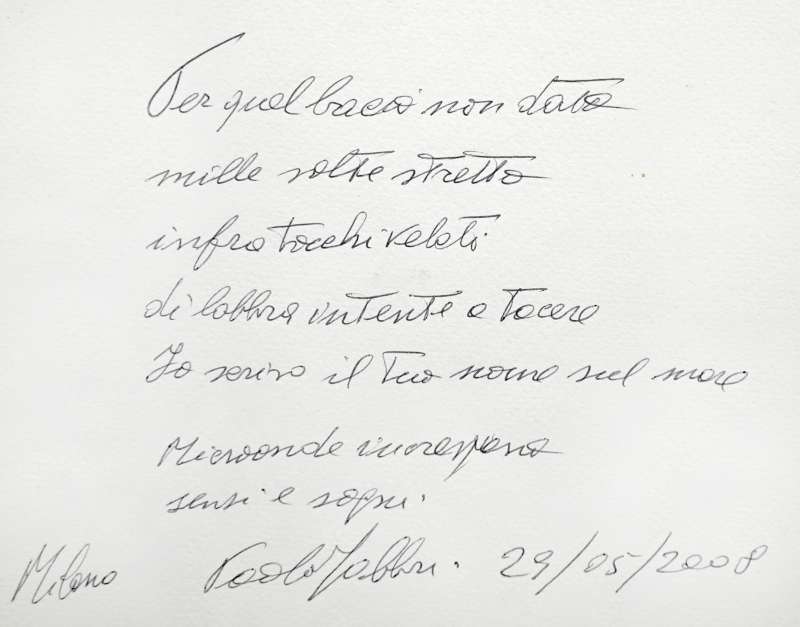 Per quel bacio non dato
mille volte stretto
infra tocchi velati
di labbra intente a tacere
Io scrivo il tuo nome sul mare
Microonde increspano
sensi e sogni.
Milano Paolo Fabbri. 29/05/2008